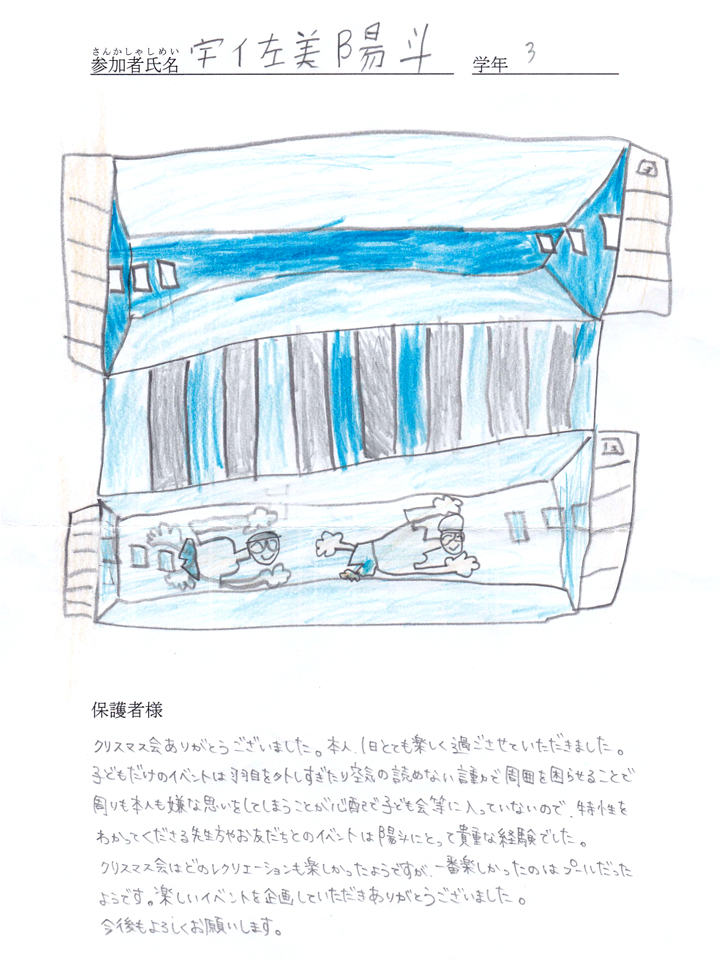 さんかしゃしめい
参加者氏名 宇佐美陽斗 学年 3
保護者様
クリスマス会ありがとうございました。本人、1日とても楽しく過ごさせていただきました。
子どもだけのイベントは羽目を外しすぎたり空気の読めない言動で周囲を困らせることで
周りも本人も嫌な思いをしてしまうことが心配で子ども会等に入っていないので、特性を
わかってくださる先生方やお友だちとのイベントは陽斗にとって貴重な経験でした。
クリスマス会はどのレクリエーションも楽しかったようですが、一番楽しかったのはプールだった
ようです。楽しいイベントを企画していただきありがとうございました。
今後もよろしくお願いします。